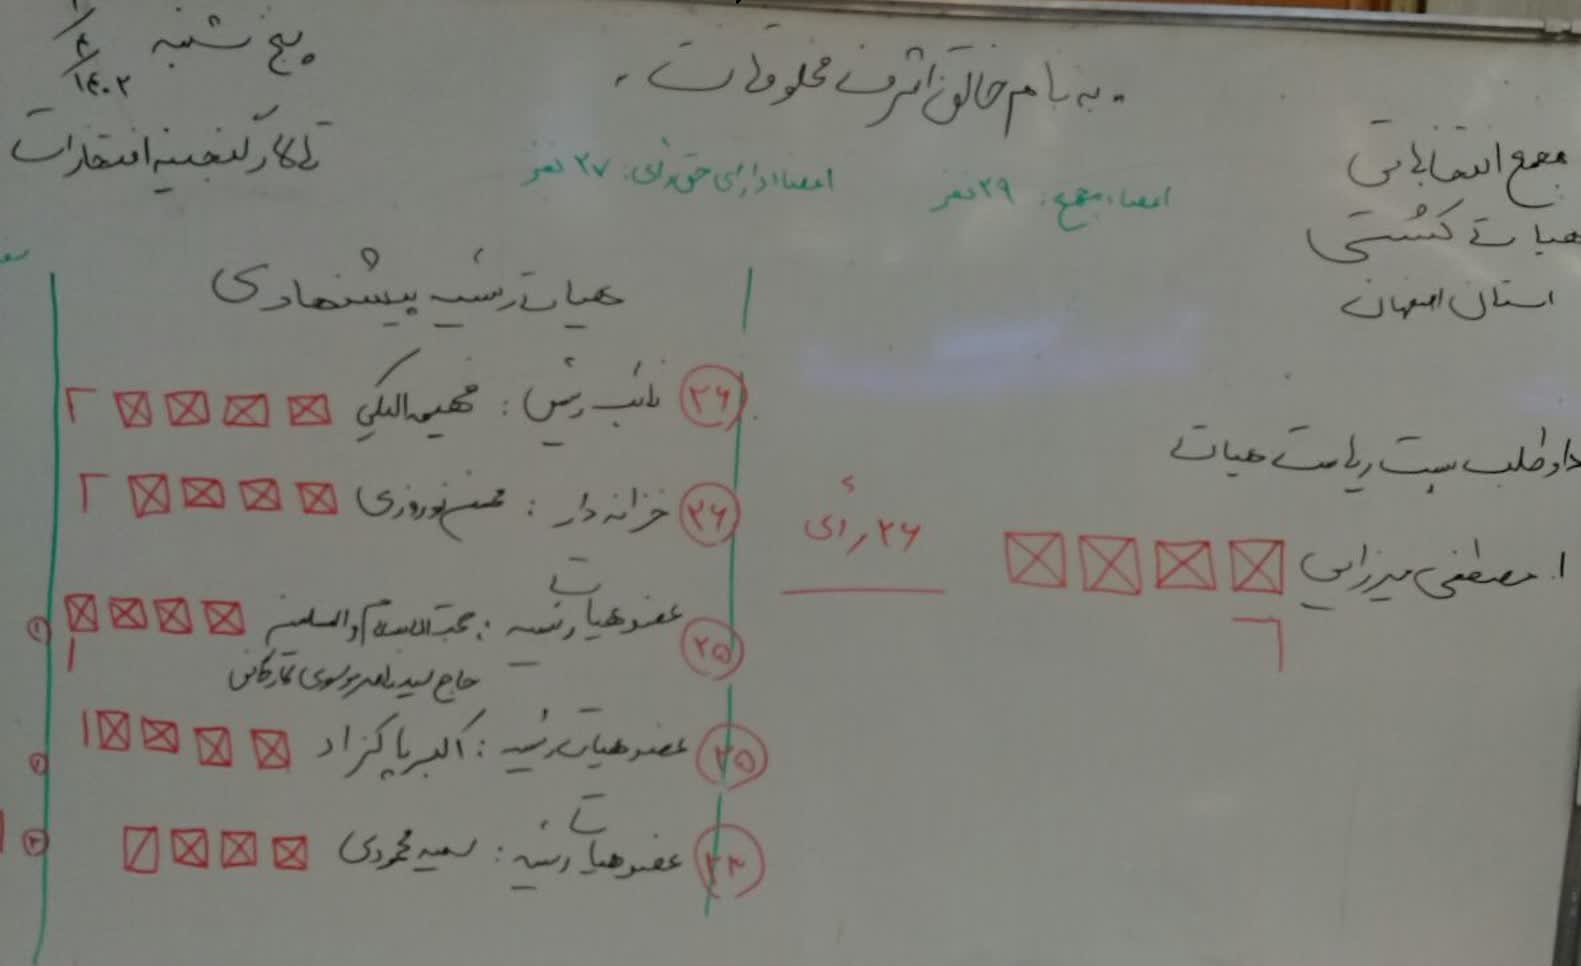 به نام خالق اشرف مخلوقات
پنج شنبه
۱۴۰۲/۴/۱
تالار گنجینه افتخارات
مجمع انتخاباتی
هیات کشتی
استان اصفهان
اعضاء مجمع: ۲۹ نفر
اعضاء دارای حق رأی: ۲۷ نفر
داوطلب پست ریاست هیات
۱. مصطفی میرزایی
۲۶ رأی
هیات رئیسه پیشنهادی
۲۶ نائب رئیس :
۲۶ خزانه دار : محسن نوروزی
۲۵ عضو هیات رئیسه : حجت الاسلام والمسلمین
حاج سید ناصر موسوی
۲۵ عضو هیات رئیسه : اکبر پاکزاد
۲۳ عضو هیات رئیسه : سعید محمودی